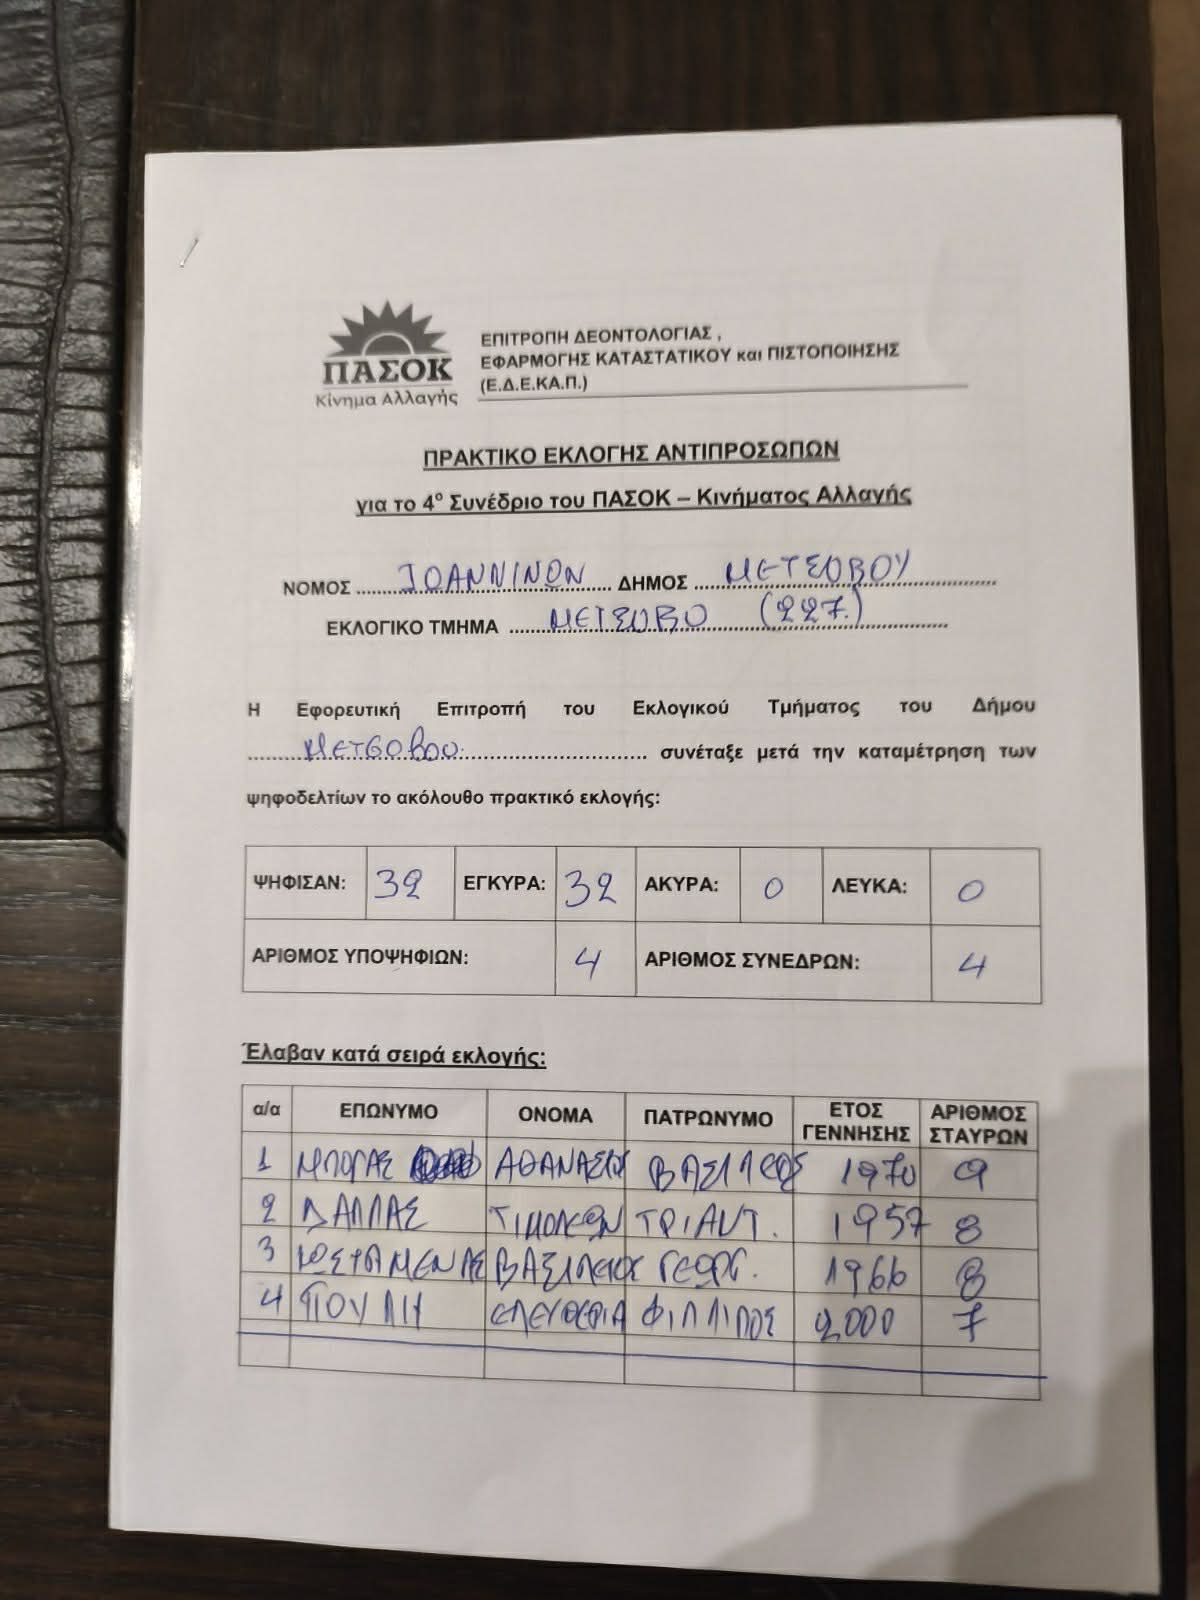 ΠΑΣΟΚ
Κίνημα Αλλαγής
ΕΠΙΤΡΟΠΗ ΔΕΟΝΤΟΛΟΓΙΑΣ ,
ΕΦΑΡΜΟΓΗΣ ΚΑΤΑΣΤΑΤΙΚΟΥ και ΠΙΣΤΟΠΟΙΗΣΗΣ
(Ε.Δ.Ε.ΚΑ.Π.)
ΠΡΑΚΤΙΚΟ ΕΚΛΟΓΗΣ ΑΝΤΙΠΡΟΣΩΠΩΝ
για το 4ο Συνέδριο του ΠΑΣΟΚ – Κινήματος Αλλαγής
ΝΟΜΟΣ ΙΩΑΝΝΙΝΩΝ ΔΗΜΟΣ ΜΕΤΣΟΒΟΥ
ΕΚΛΟΓΙΚΟ ΤΜΗΜΑ ΜΕΤΣΟΒΟ (227.)
Η Εφορευτική Επιτροπή του Εκλογικού Τμήματος του Δήμου
Μετσοβου. συνέταξε μετά την καταμέτρηση των
ψηφοδελτίων το ακόλουθο πρακτικό εκλογής:
ΨΗΦΙΣΑΝ: 32 ΕΓΚΥΡΑ: 32 ΑΚΥΡΑ: 0 ΛΕΥΚΑ: 0
ΑΡΙΘΜΟΣ ΥΠΟΨΗΦΙΩΝ: 4 ΑΡΙΘΜΟΣ ΣΥΝΕΔΡΩΝ: 4
Έλαβαν κατά σειρά εκλογής:
α/α ΕΠΩΝΥΜΟ ΟΝΟΜΑ ΠΑΤΡΩΝΥΜΟ ΕΤΟΣ ΓΕΝΝΗΣΗΣ ΑΡΙΘΜΟΣ ΣΤΑΥΡΩΝ
1 ΜΠΟΓΑΣ ΑΘΑΝΑΣΙΟΣ ΒΑΣΙΛΕΙΟΣ 1970 9
2 ΔΑΛΛΑΣ ΤΙΜΟΛΕΩΝ ΤΡΙΑΝΤ. 1957 8
3 ΒΑΣΙΛΕΙΟΣ ΓΕΩΡΓ. 1966 8
4 ΠΟΥΛΗ ΕΛΕΥΘΕΡΙΑ ΦΙΛΛΙΠΟΣ 2000 7